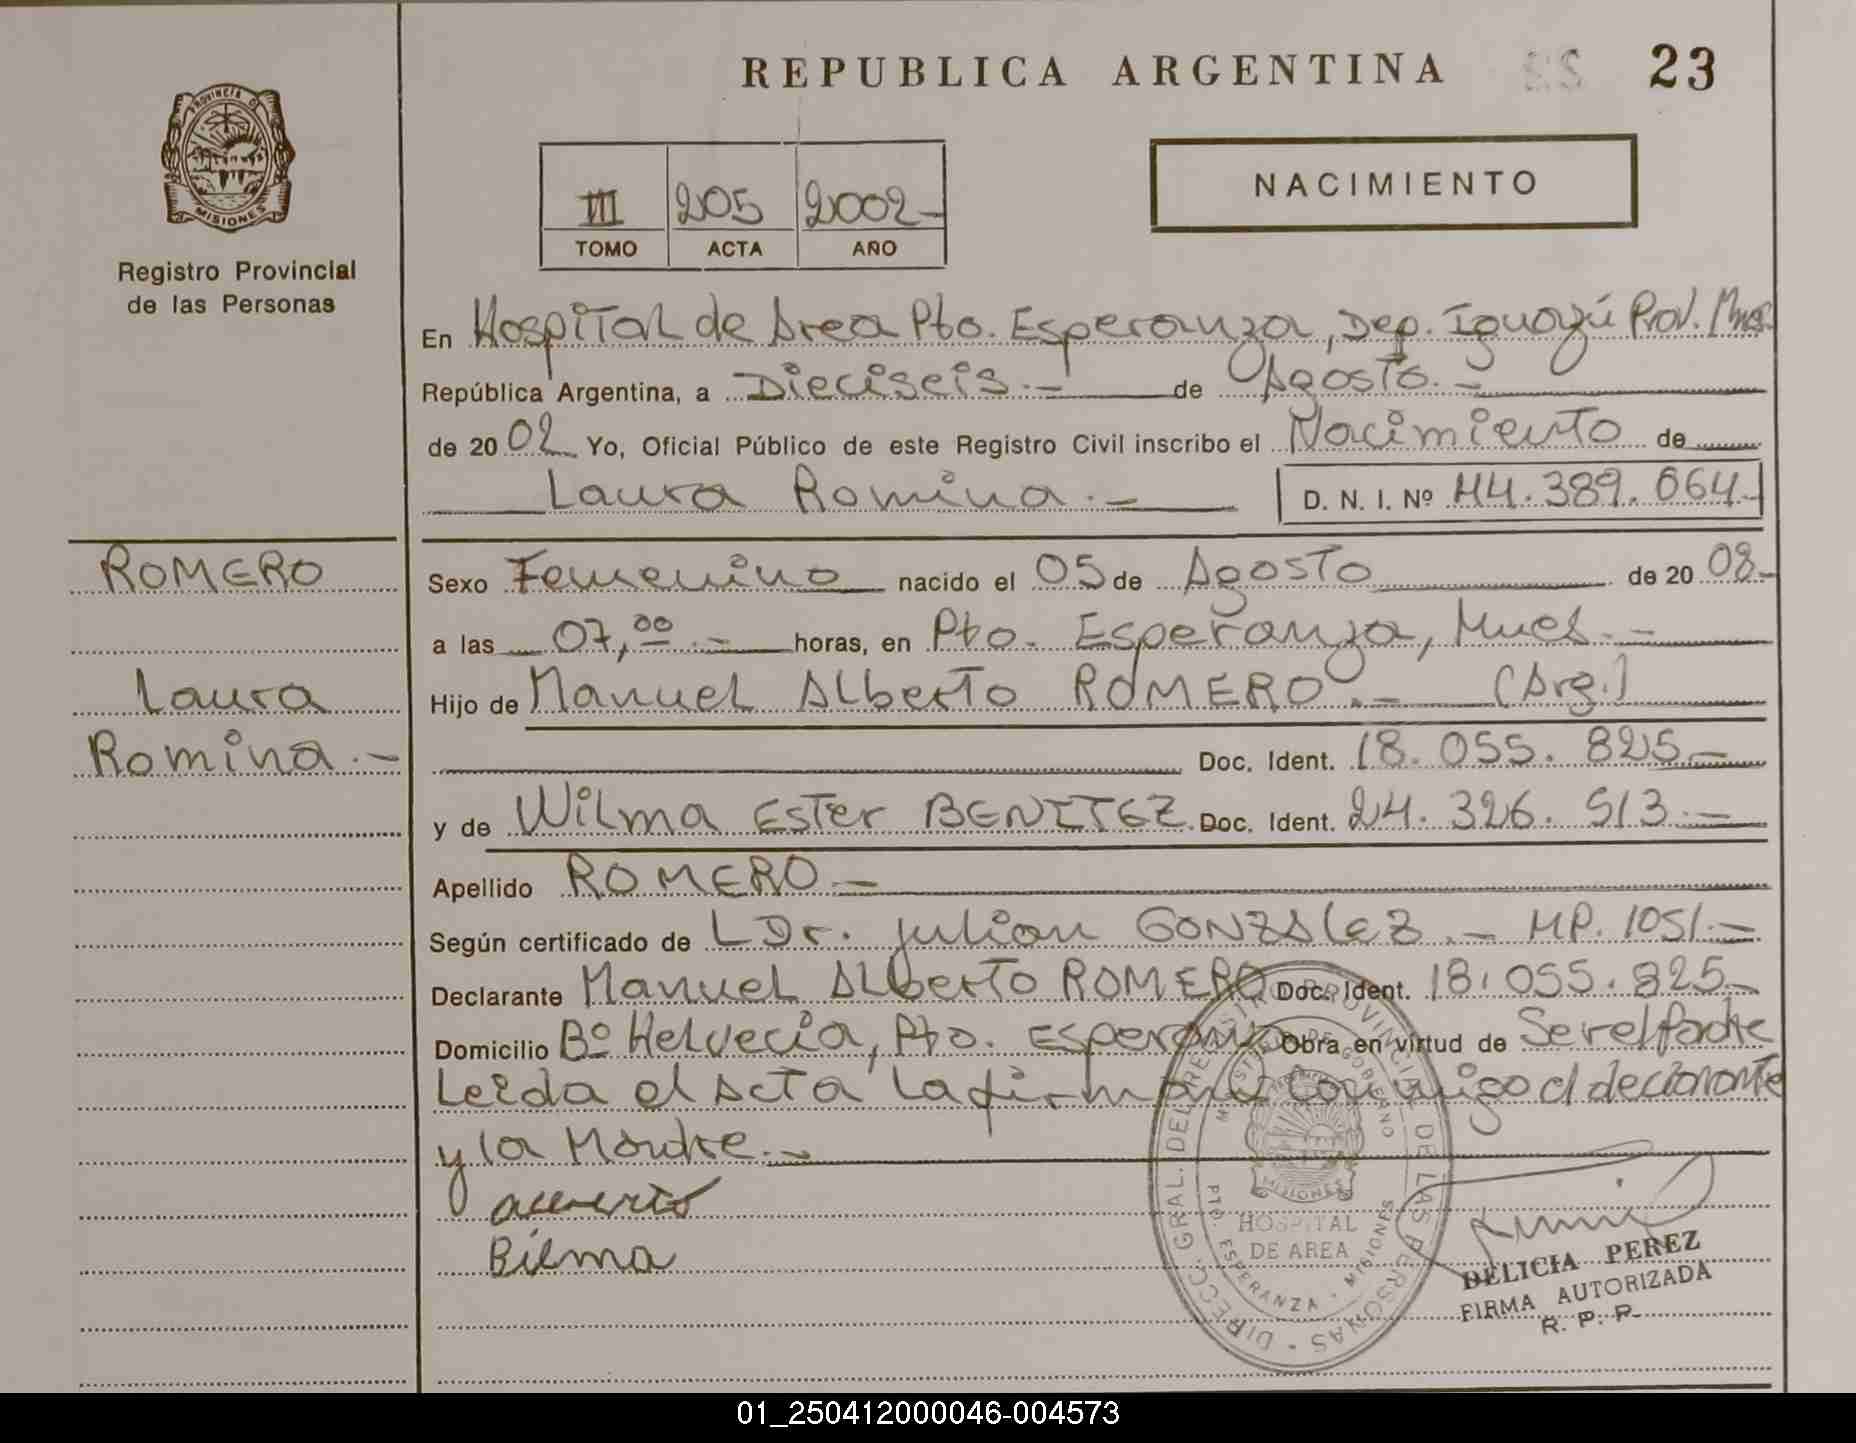 REPUBLICA ARGENTINA 23
PROVINCIA D
MISIONES
Registro Provincial
de las Personas
III 205 2002-
TOMO ACTA AÑO
NACIMIENTO
En Hospital de Area Pto. Esperanza, Dep. Iguazú Prov. Mnes.
República Argentina, a Dieciseis.- de Agosto.-
de 2002 Yo, Oficial Público de este Registro Civil inscribo el Nacimiento de
Laura Romina.- D. N. I. Nº 44.389.064-
ROMERO
Laura
Romina.-
Sexo Femenino nacido el 05 de Agosto de 20 02-
a las 07,00.- horas, en Pto. Esperanza, Mnes.-
Hijo de Manuel Alberto ROMERO.- (Arg.)
Doc. Ident. 18.055.825-
y de Wilma Ester BENITEZ. Doc. Ident. 24.326.513.-
Apellido ROMERO-
Según certificado de L Dr. Julian GONZALEZ.- MP. 1051.-
Declarante Manuel Alberto ROMERO Doc. Ident. 18.055.825-
Domicilio Bº Helvecia, Pto. Esperanza. Obra en virtud de Ser el padre
Leida el Acta, la firman conmigo el declarante
y la Madre.-
Bilma
DIRECC. GRAL. DEL REGISTRO PROVINCIAL DE LAS PERSONAS
MINISTERIO DE GOBIERNO
MISIONES
HOSPITAL
DE AREA
PTO. ESPERANZA - MISIONES
DELICIA PEREZ
FIRMA AUTORIZADA
R. P. P.
01_250412000046-004573